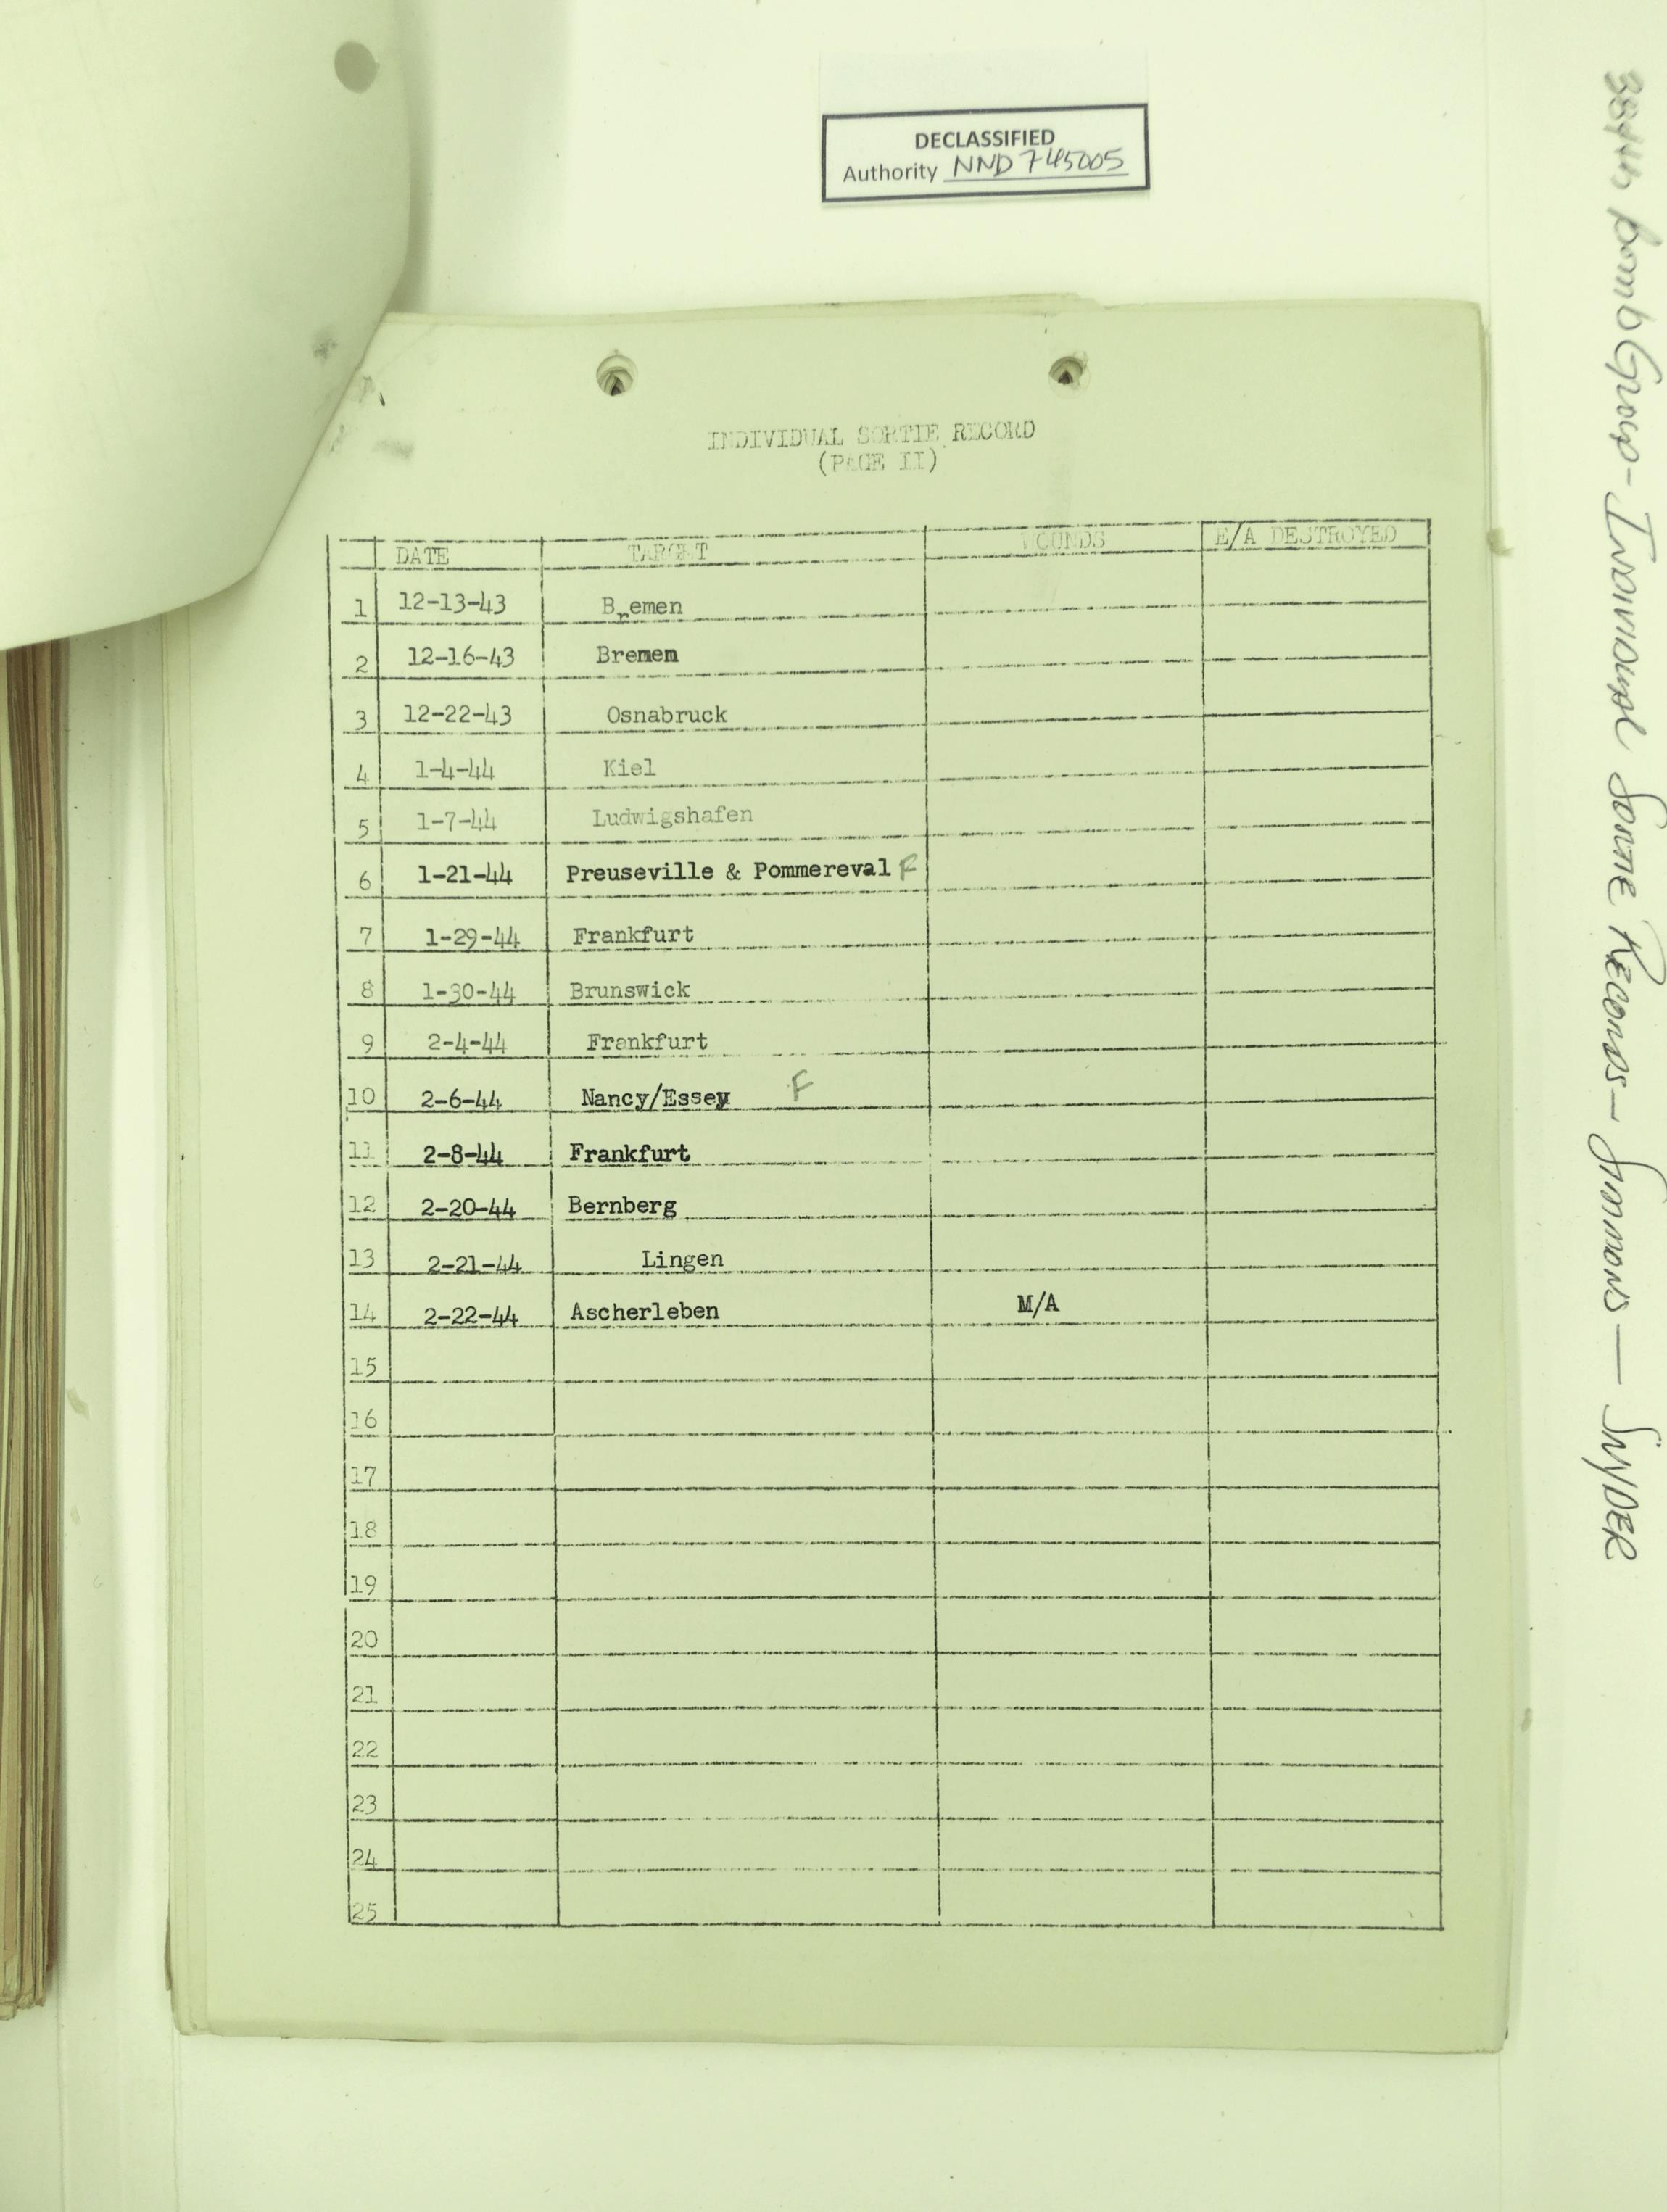 DECLASSIFIED
Authority NND 745005
INDIVIDUAL SORTIE RECORD
(PAGE II)
DATE TARGET WOUNDS E/A DESTROYED
1 12-13-43 Bremen
2 12-16-43 Bremen
3 12-22-43 Osnabruck
4 1-4-44 Kiel
5 1-7-44 Ludwigshafen
6 1-21-44 Preuseville & Pommereval F
7 1-29-44 Frankfurt
8 1-30-44 Brunswick
9 2-4-44 Frankfurt
10 2-6-44 Nancy/Essey F
11 2-8-44 Frankfurt
12 2-20-44 Bernberg
13 2-21-44 Lingen
14 2-22-44 Ascherleben M/A
15
16
17
18
19
20
21
22
23
24
25
384th Bomb Group - Individual Sortie Records - Simmons - SNYDER